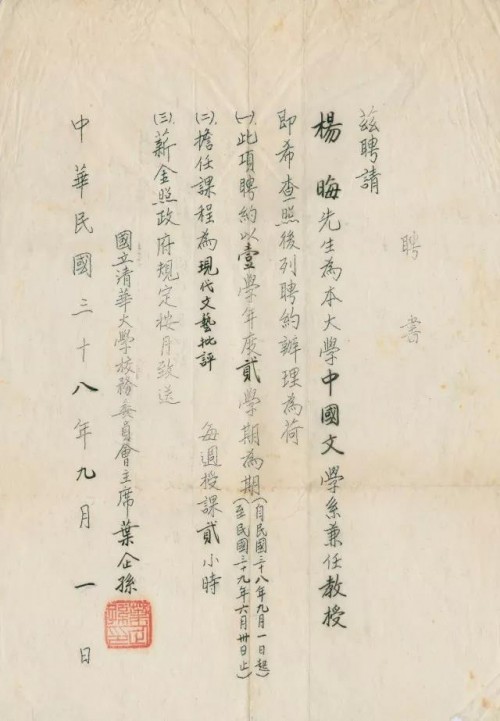 聘書
茲聘請
楊晦先生為本大學中國文學系兼任教授
即希查照後列聘約辦理為荷
(一).此項聘約以壹學年度貳學期為期(自民國三十八年九月一日起至民國三十九年六月卅日止)
(二).擔任課程為現代文藝批評 每週授課貳小時
(三).薪金照政府規定按月致送
國立清華大學校務委員會主席葉企孫
中華民國三十八年九月一日